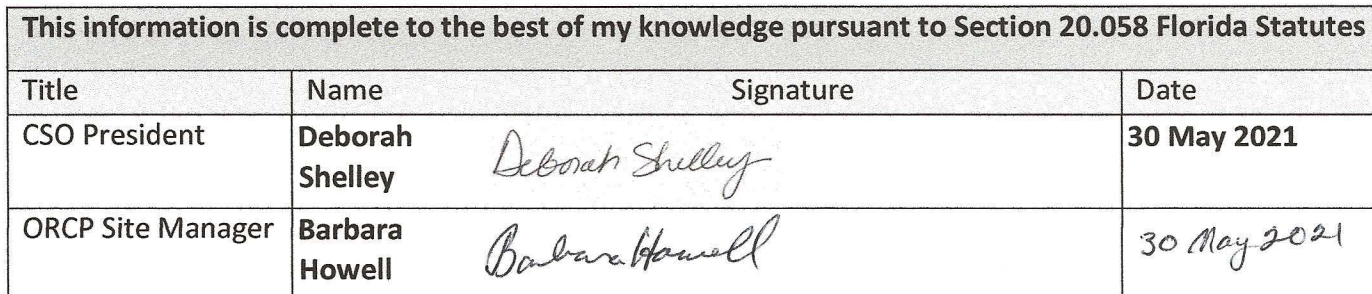 This information is complete to the best of my knowledge pursuant to Section 20.058 Florida Statutes
Title Name Signature Date
CSO President Deborah Shelley Deborah Shelley 30 May 2021
ORCP Site Manager Barbara Howell Barbara Howell 30 May 2021